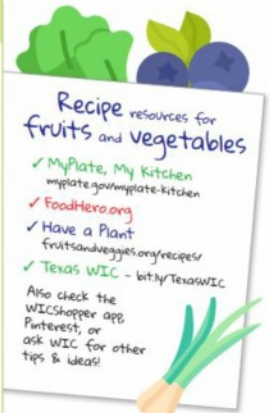 Recipe resources for
fruits and vegetables
✓ MyPlate, My Kitchen
myplate.gov/myplate-kitchen
✓ FoodHero.org
✓ Have a Plant
fruitsandveggies.org/recipes/
✓ Texas WIC - bit.ly/TexasWIC
Also check the
WICShopper app,
Pinterest, or
ask WIC for other
tips & ideas!